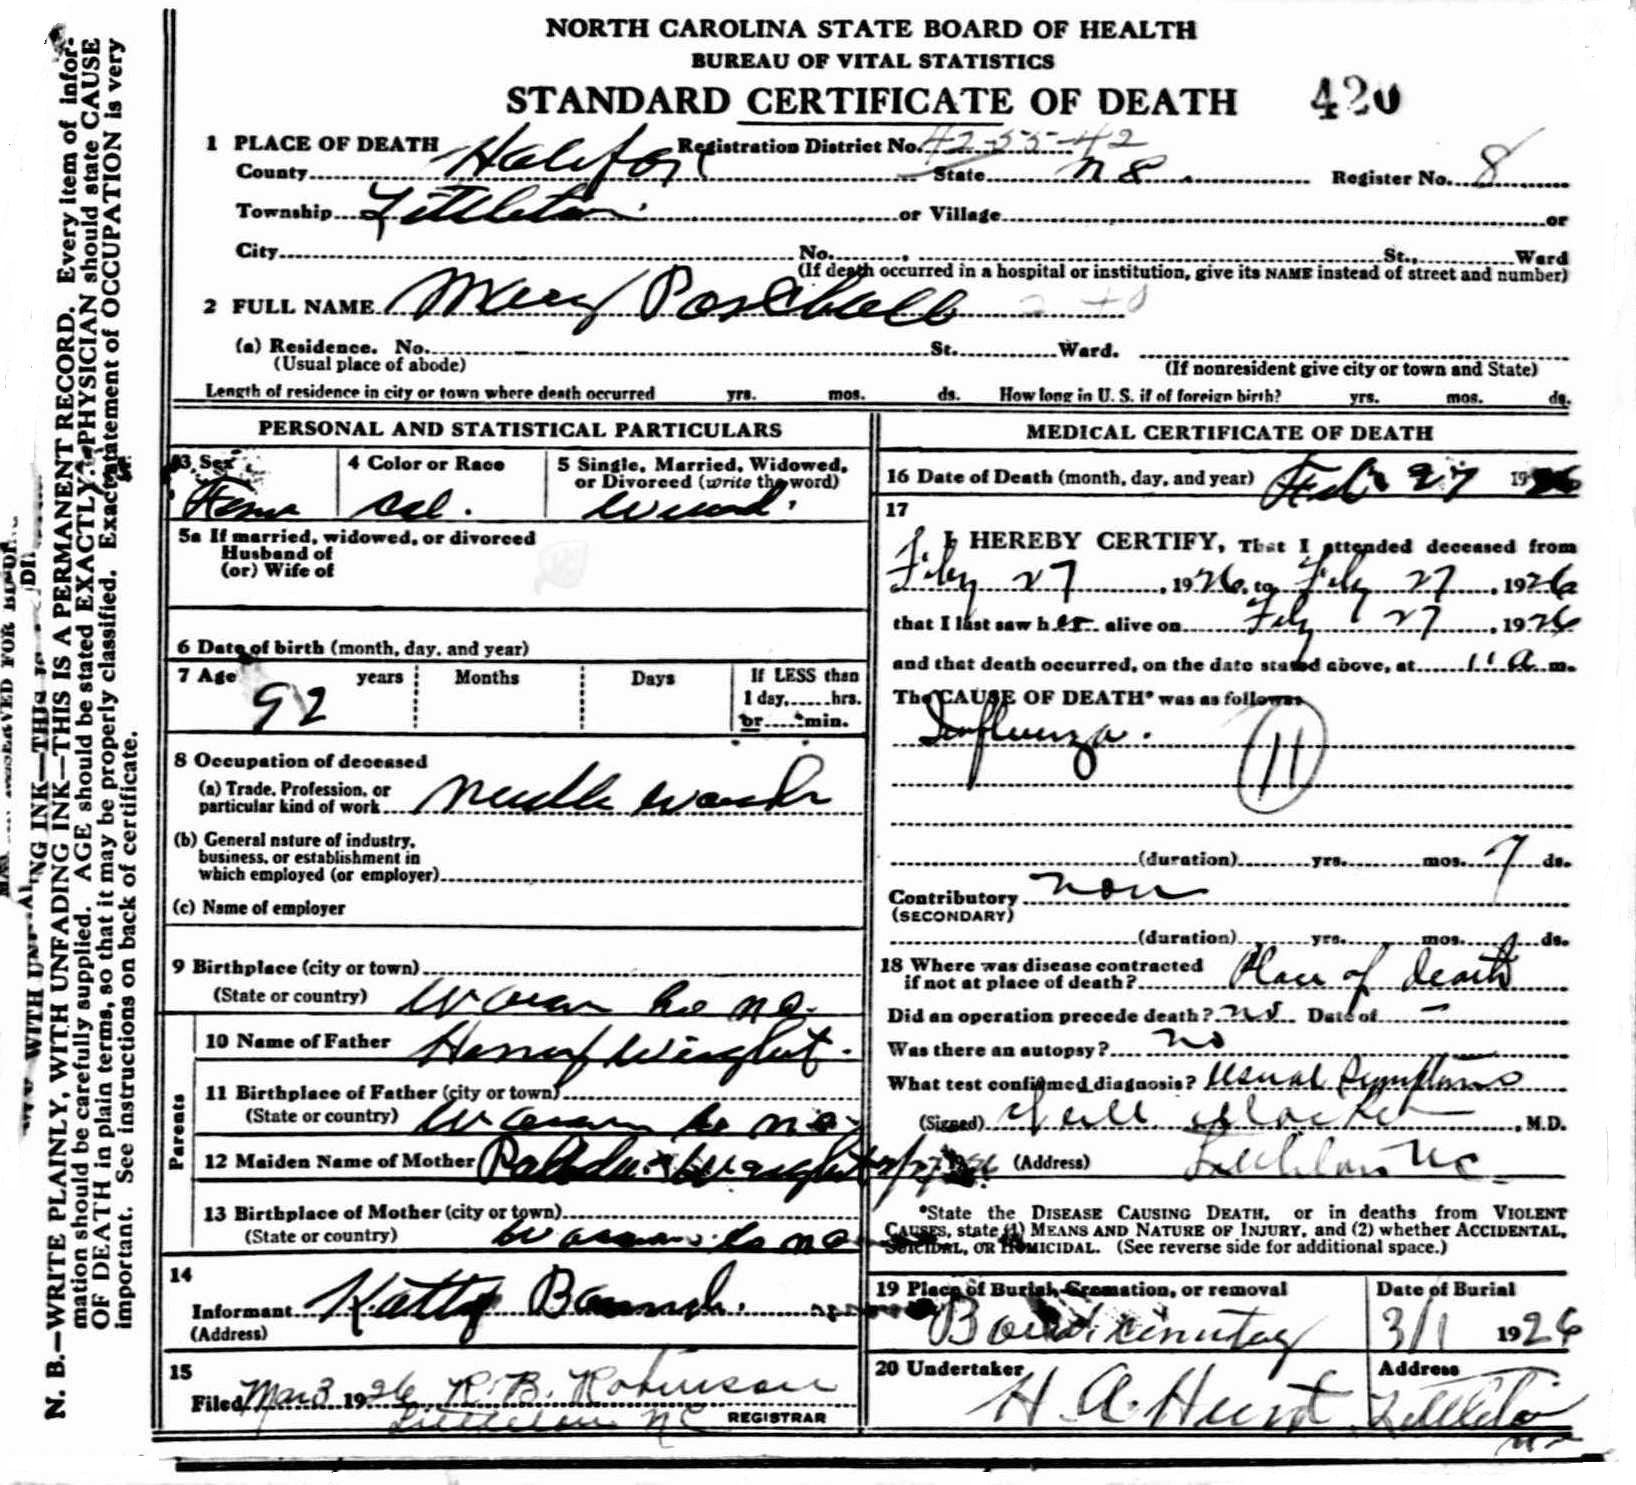 NORTH CAROLINA STATE BOARD OF HEALTH
BUREAU OF VITAL STATISTICS
STANDARD CERTIFICATE OF DEATH 420
1 PLACE OF DEATH Registration District No. 42-55-42
County Halifax State N C Register No. 8
Township Littleton or Village or
City No. St., Ward
(If death occurred in a hospital or institution, give its NAME instead of street and number)
2 FULL NAME Mary Paschall
(a) Residence. No. St. Ward.
(Usual place of abode) (If nonresident give city or town and State)
Length of residence in city or town where death occurred yrs. mos. ds. How long in U. S. if of foreign birth? yrs. mos. ds.
PERSONAL AND STATISTICAL PARTICULARS
3 Sex 4 Color or Race 5 Single, Married, Widowed, or Divorced (write the word)
Fem Col.
5a If married, widowed, or divorced
Husband of
(or) Wife of
6 Date of birth (month, day, and year)
7 Age years Months Days If LESS than
92 1 day, hrs.
or min.
8 Occupation of deceased
(a) Trade, Profession, or
particular kind of work
(b) General nature of industry,
business, or establishment in
which employed (or employer)
(c) Name of employer
9 Birthplace (city or town)
(State or country) Warren Co N C.
Parents
10 Name of Father Henry Wright.
11 Birthplace of Father (city or town)
(State or country) Warren Co N C
12 Maiden Name of Mother Wright
13 Birthplace of Mother (city or town)
(State or country) Warren Co N C
14
Informant Katty
(Address)
15
Filed Mar 3 1926 R. B. Robinson
Littleton NC REGISTRAR
MEDICAL CERTIFICATE OF DEATH
16 Date of Death (month, day, and year) Feb 27 1926
17
I HEREBY CERTIFY, That I attended deceased from
Feby 27, 1926, to Feby 27, 1926
that I last saw her alive on Feby 27, 1926
and that death occurred, on the date stated above, at 11 a m.
The CAUSE OF DEATH* was as follows:
Influenza. 11
(duration) yrs. mos. 7 ds.
Contributory non
(SECONDARY)
(duration) yrs. mos. ds.
18 Where was disease contracted
if not at place of death? Place of death
Did an operation precede death? no Date of —
Was there an autopsy? no
What test confirmed diagnosis? Usual Symptoms
(Signed) M.D.
2/27 1926 (Address) Littleton NC
*State the DISEASE CAUSING DEATH, or in deaths from VIOLENT
CAUSES, state (1) MEANS AND NATURE OF INJURY, and (2) whether ACCIDENTAL,
SUICIDAL, OR HOMICIDAL. (See reverse side for additional space.)
19 Place of Burial, Cremation, or removal Date of Burial
3/1 1926
20 Undertaker Address
H. A. Hunt Littleton
N C
N. B.—WRITE PLAINLY, WITH UNFADING INK—THIS IS A PERMANENT RECORD. Every item of infor-
mation should be carefully supplied. AGE should be stated EXACTLY. PHYSICIAN should state CAUSE
OF DEATH in plain terms, so that it may be properly classified. Exact statement of OCCUPATION is very
important. See instructions on back of certificate.